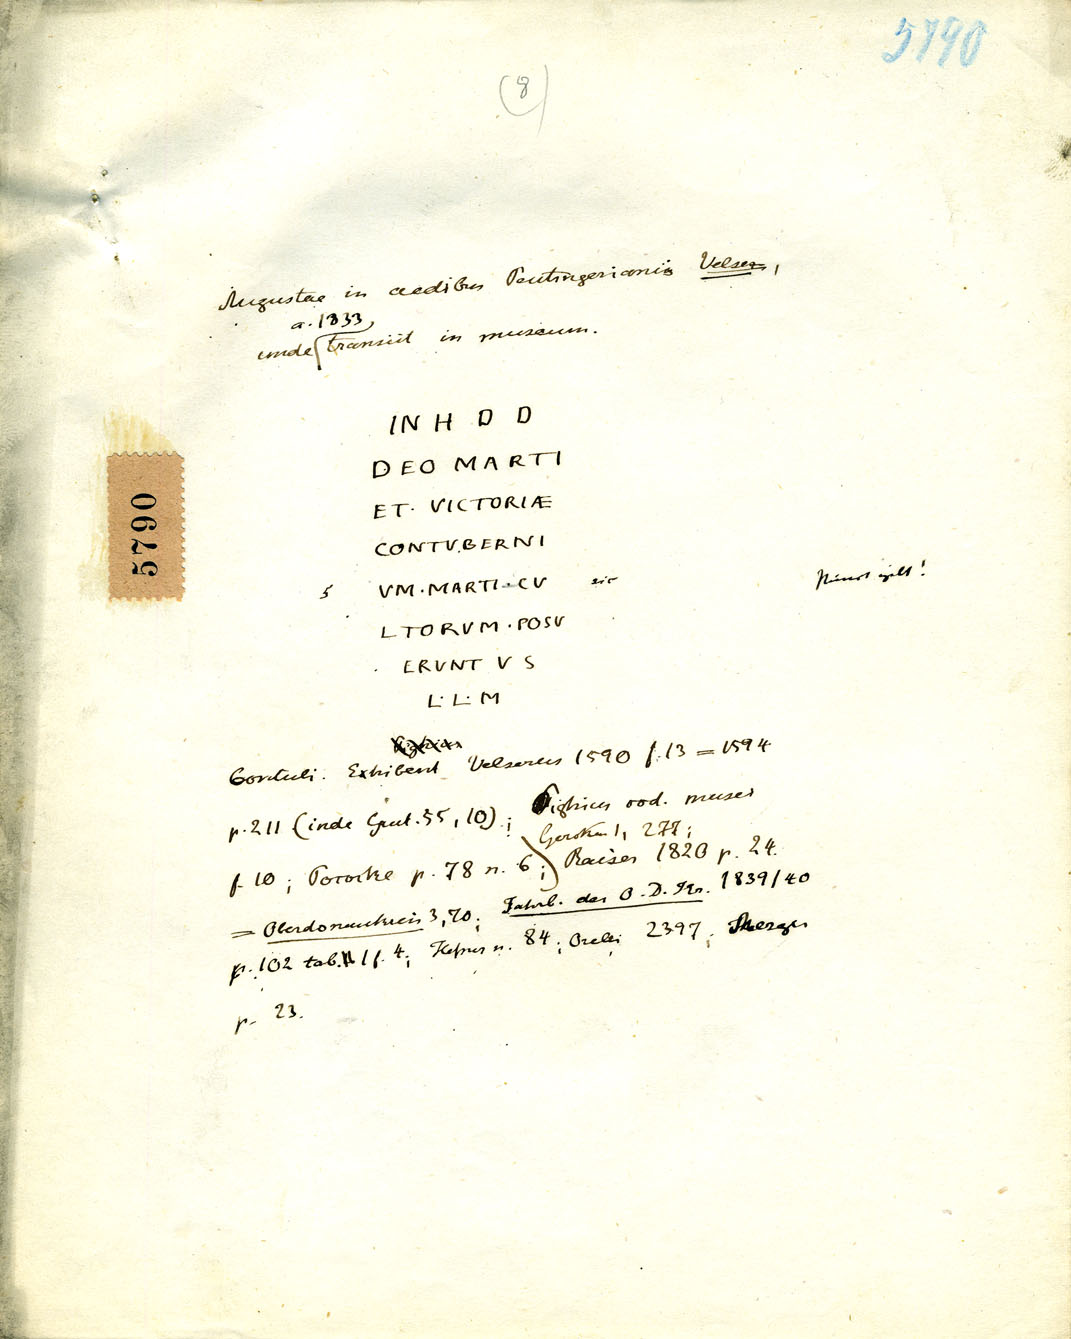 5790
(8)
Augustae in aedibus Peutingerianis Velser,
a. 1833
unde transiit in museum.
IN H D D
DEO MARTI
ET · VICTORIÆ
CONTVBERNI
5 VM · MARTI · CV sic
LTORVM · POSV
ERVNT V S
L · L · M
5790
Contuli. Exhibent Velserus 1590 f. 13 = 1594
p. 211 (inde Grut. 55, 10); Pighius cod. musei
Gercken 1, 277;
f. 10; Pococke p. 78 n. 6; Raiser 1820 p. 24
= Oberdonaukreis 3, 70; Jahrb. des O. D. Kr. 1839/40
p. 102 tab. 1 f. 4; Hefner n. 84; Orelli 2397; Mezger
p. 23.